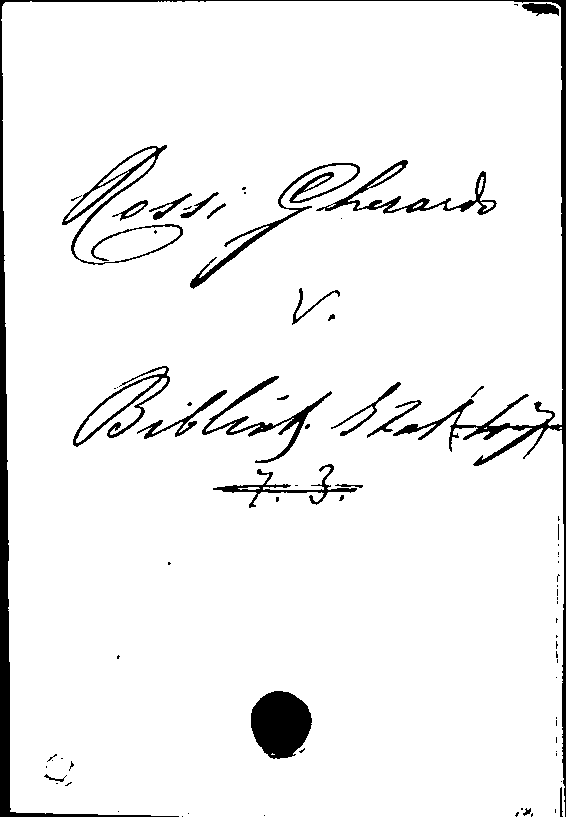 Rossi Gherardo
v.
Biblioth.
7. 3.